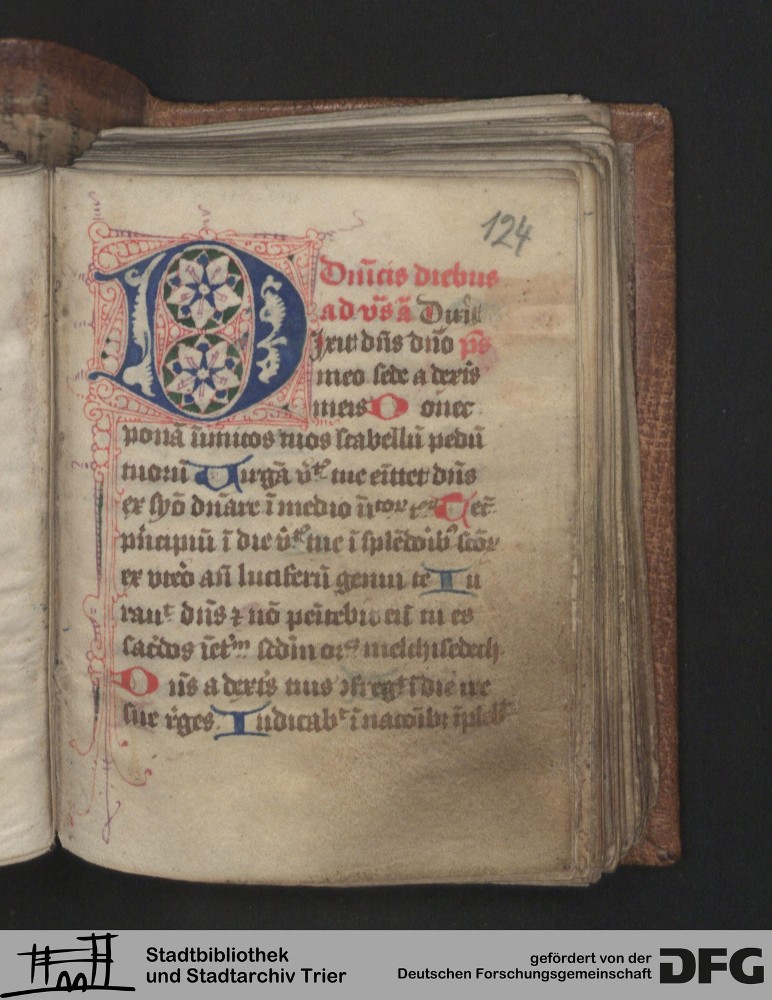 124
Dn̄icis diebus
ad vs̄ a Dixit
Dixit dn̄s dn̄o ps
meo sede a dextris
meis Donec
ponā inimicos tuos scabellū pedū
tuorū Uirgā v̓t tue emittet dn̄s
ex syō dn̄are ī medio Tecū
pͥncipiū ī die v̓t tue ī splēdoib scōr
ex vtero an̄ luciferū genui te Iu
rauͭ dn̄s ⁊ nō penitebit eū tu es
sacdos īet'm scdm melchisedech
Dn̄s a dextris tuis 9fregͭ ī die ire
sue reges Iudicabͭ ī nacōib īpleb
Stadtbibliothek
und Stadtarchiv Trier
gefördert von der
Deutschen Forschungsgemeinschaft
DFG